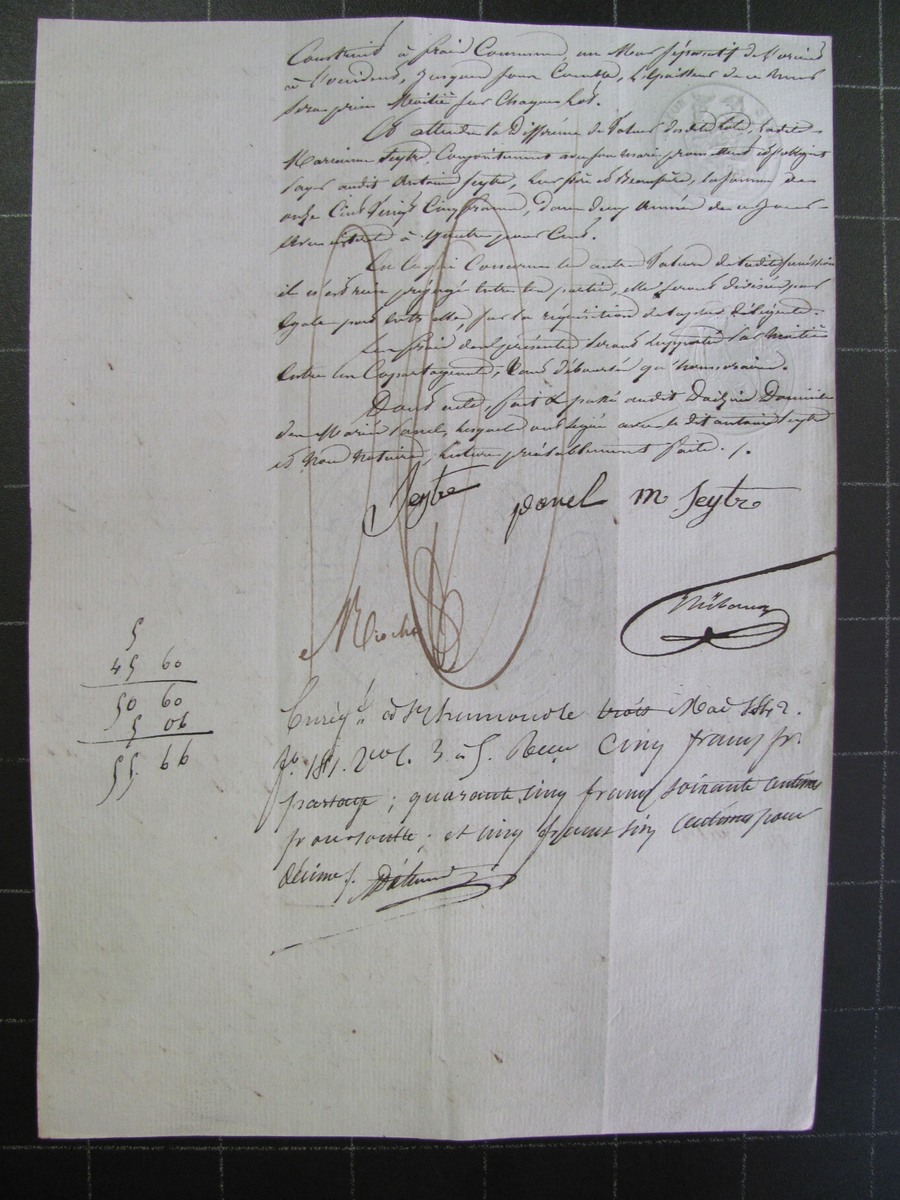 Construit à frais Communs, un Mur séparatif de l'orient
à l'occident, jusques fond Comble, l'épaisseur de ce Mur
sera prise Moitié sur Chaque Lot.
Et attendu la Différence de Valeur desdits Lots, ladite
Marianne Seytre Conjointement avec son mari, promettent et s'obligent
payer audit Antoine Seytre, leur frère et Beaufrère, la somme de
onze Cent Vingt Cinq francs, dans deux Années de ce Jour
avec intérêt à quatre pour Cent.
En ce qui Concerne les autres Valeurs de ladite Succession
il n'est rien préjugé entre les parties, elles seront divisées par
égales parts entre elles, sur la réquisition de la plus diligente.
Les frais des présentes seront supportés par Moitié
entre les Copartageants;
Dont acte, fait & passé audit Domicile
des Mariés Panel, lesquels ont signé avec le dit antoine Seytre
et Nous Notaire, Lecture préalablement faite ./.
Seytre panel m Seytre
Roche
5
45 60
50 60
5 06
55. 66
Enreg.é à trois Mai 1842.
f.o 181. v.o c. 3. à 5. Reçu Cinq francs pr.
partage; quarante cinq francs soixante centimes
pour soulte; et cinq francs six centimes pour
décime /.